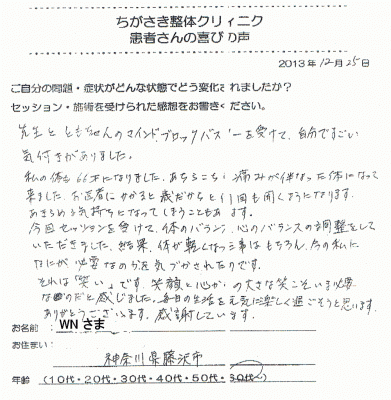 ちがさき整体クリィニク
患者さんの喜びの声
2013年12月25日
ご自分の問題・症状がどんな状態でどう変化されましたか？
セッション・施術を受けられた感想をお書きください。
先生とともちゃんのマインドブロックバスターを受けて、自分ですごい
気付きがありました。
私の体も66才になりました。あちらこちら痛みが伴なった体になって
来ました。お医者にかかると歳だからと何回も聞くようになります。
あきらめる気持ちになってしまうこともあります。
今回セッションを受けて、体のバランス、心のバランスの調整をして
いただきました。結果、体が軽くなった事はもちろん、今の私に
なにが必要なのかを気づかされたのです。
それは「笑い」です。笑顔と心からの大きな笑こそいま必要
なのだと感じました。毎日の生活を元気に楽しく過ごそうと思います。
ありがとうございます。感謝しています。
お名前： WN さま
お住まい：
神奈川県藤沢市
年齢 （10代・20代・30代・40代・50代・60代～）